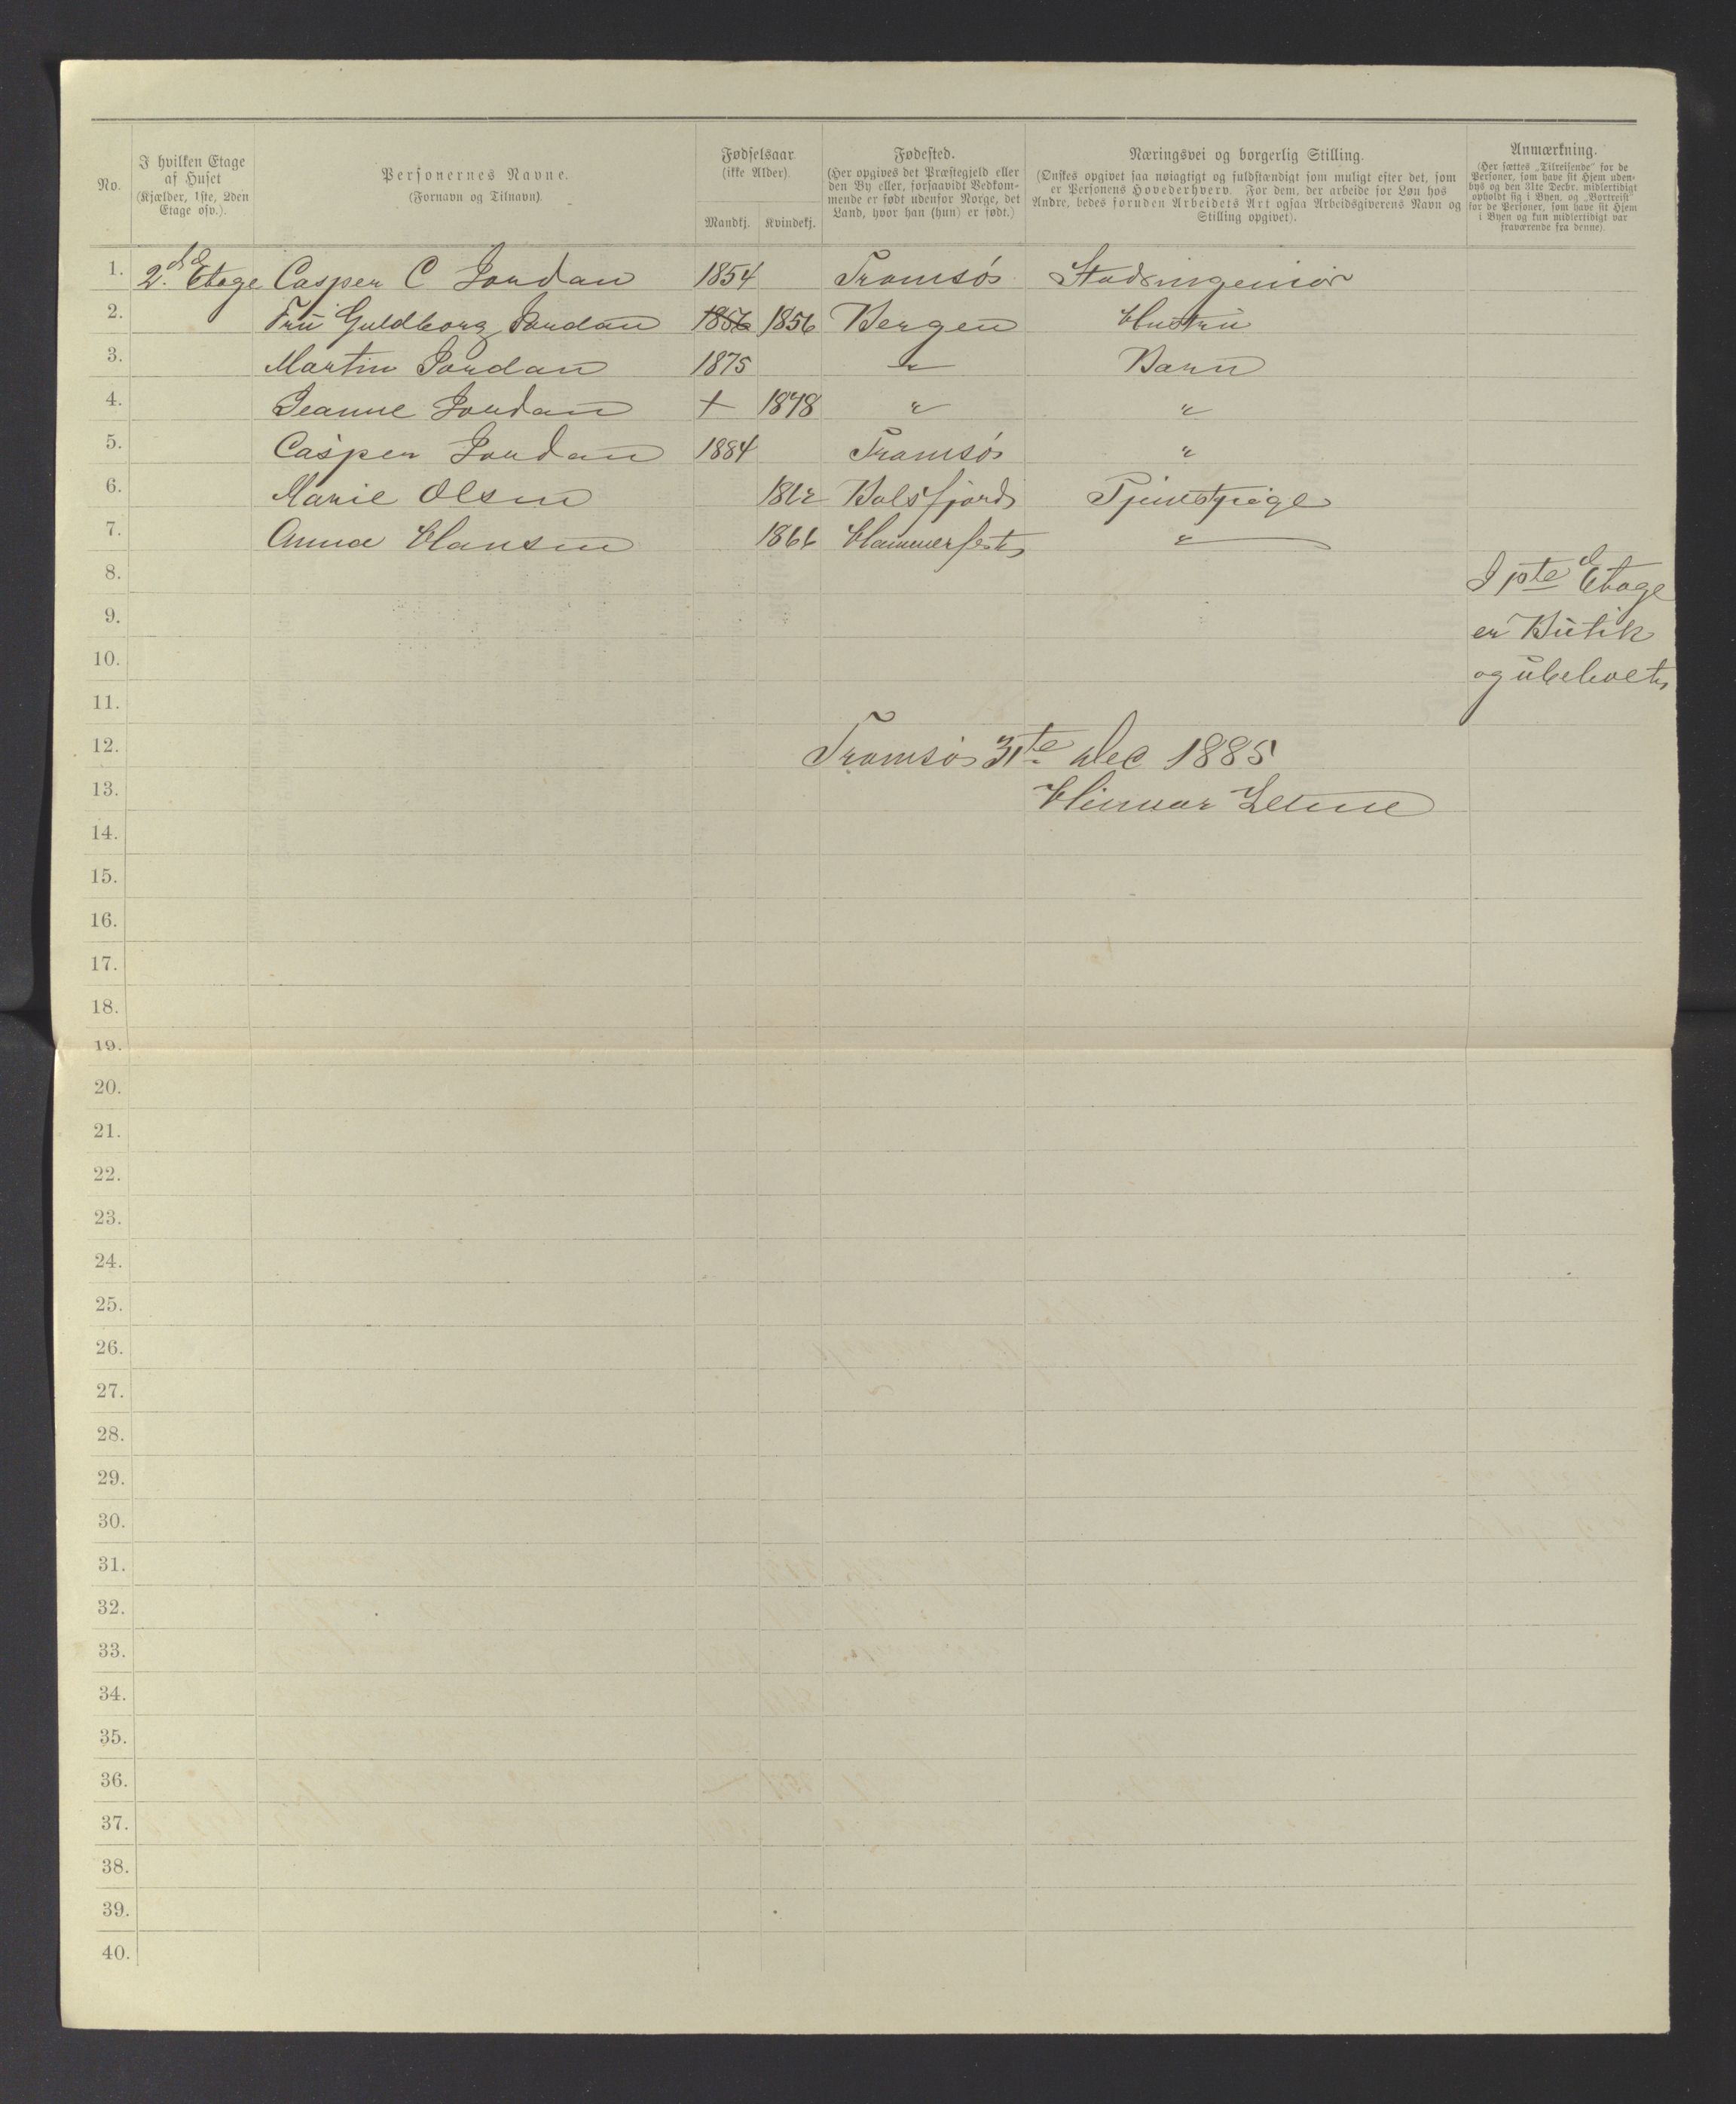 No.
I hvilken Etage
af Huset
(Kjælder, 1ste, 2den
Etage osv.).
Personernes Navne.
(Fornavn og Tilnavn).
Fødselsaar
(ikke Alder).
Mandkj. Kvindekj.
Fødested.
(Her opgives det Præstegjeld eller
den By eller, forsaavidt Vedkom-
mende er født udenfor Norge, det
Land, hvor han (hun) er født.)
Næringsvei og borgerlig Stilling.
(Ønskes opgivet saa nøiagtigt og fuldstændigt som muligt efter det, som
er Personens Hovederhverv. For dem, der arbeide for Løn hos
Andre, bedes foruden Arbeidets Art ogsaa Arbeidsgiverens Navn og
Stilling opgivet).
Anmærkning.
(Her sættes „Tilreisende" for de
Personer, som have sit Hjem uden-
bys og den 31te Decbr. midlertidigt
opholdt sig i Byen, og „Bortreist"
for de Personer, som have sit Hjem
i Byen og kun midlertidigt var
fraværende fra denne).
1. 2.de Etage Casper C Jordan 1854 Tromsø Stadsingeniør
2. Fru Guldborg Jordan 1856 1856 Bergen Hustru
3. Martin Jordan 1875 " Barn
4. Jeanne Jordan + 1878 " "
5. Casper Jordan 1884 Tromsø "
6. Marie Olsen 1862 Balsfjord Tjenestpige
7. Anna Hansen 1866 Hammerfest "
8. I 1ste Etage
9. er Butik
10. og ubeboet
11.
12. Tromsø 31te Dec 1885
13.
14.
15.
16.
17.
18.
19.
20.
21.
22.
23.
24.
25.
26.
27.
28.
29.
30.
31.
32.
33.
34.
35.
36.
37.
38.
39.
40.